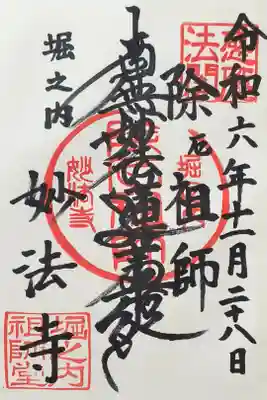 令和六年十一月二十八日
除厄祖師
南無妙法蓮華経
堀之内
妙法寺
堀之内
祖師堂